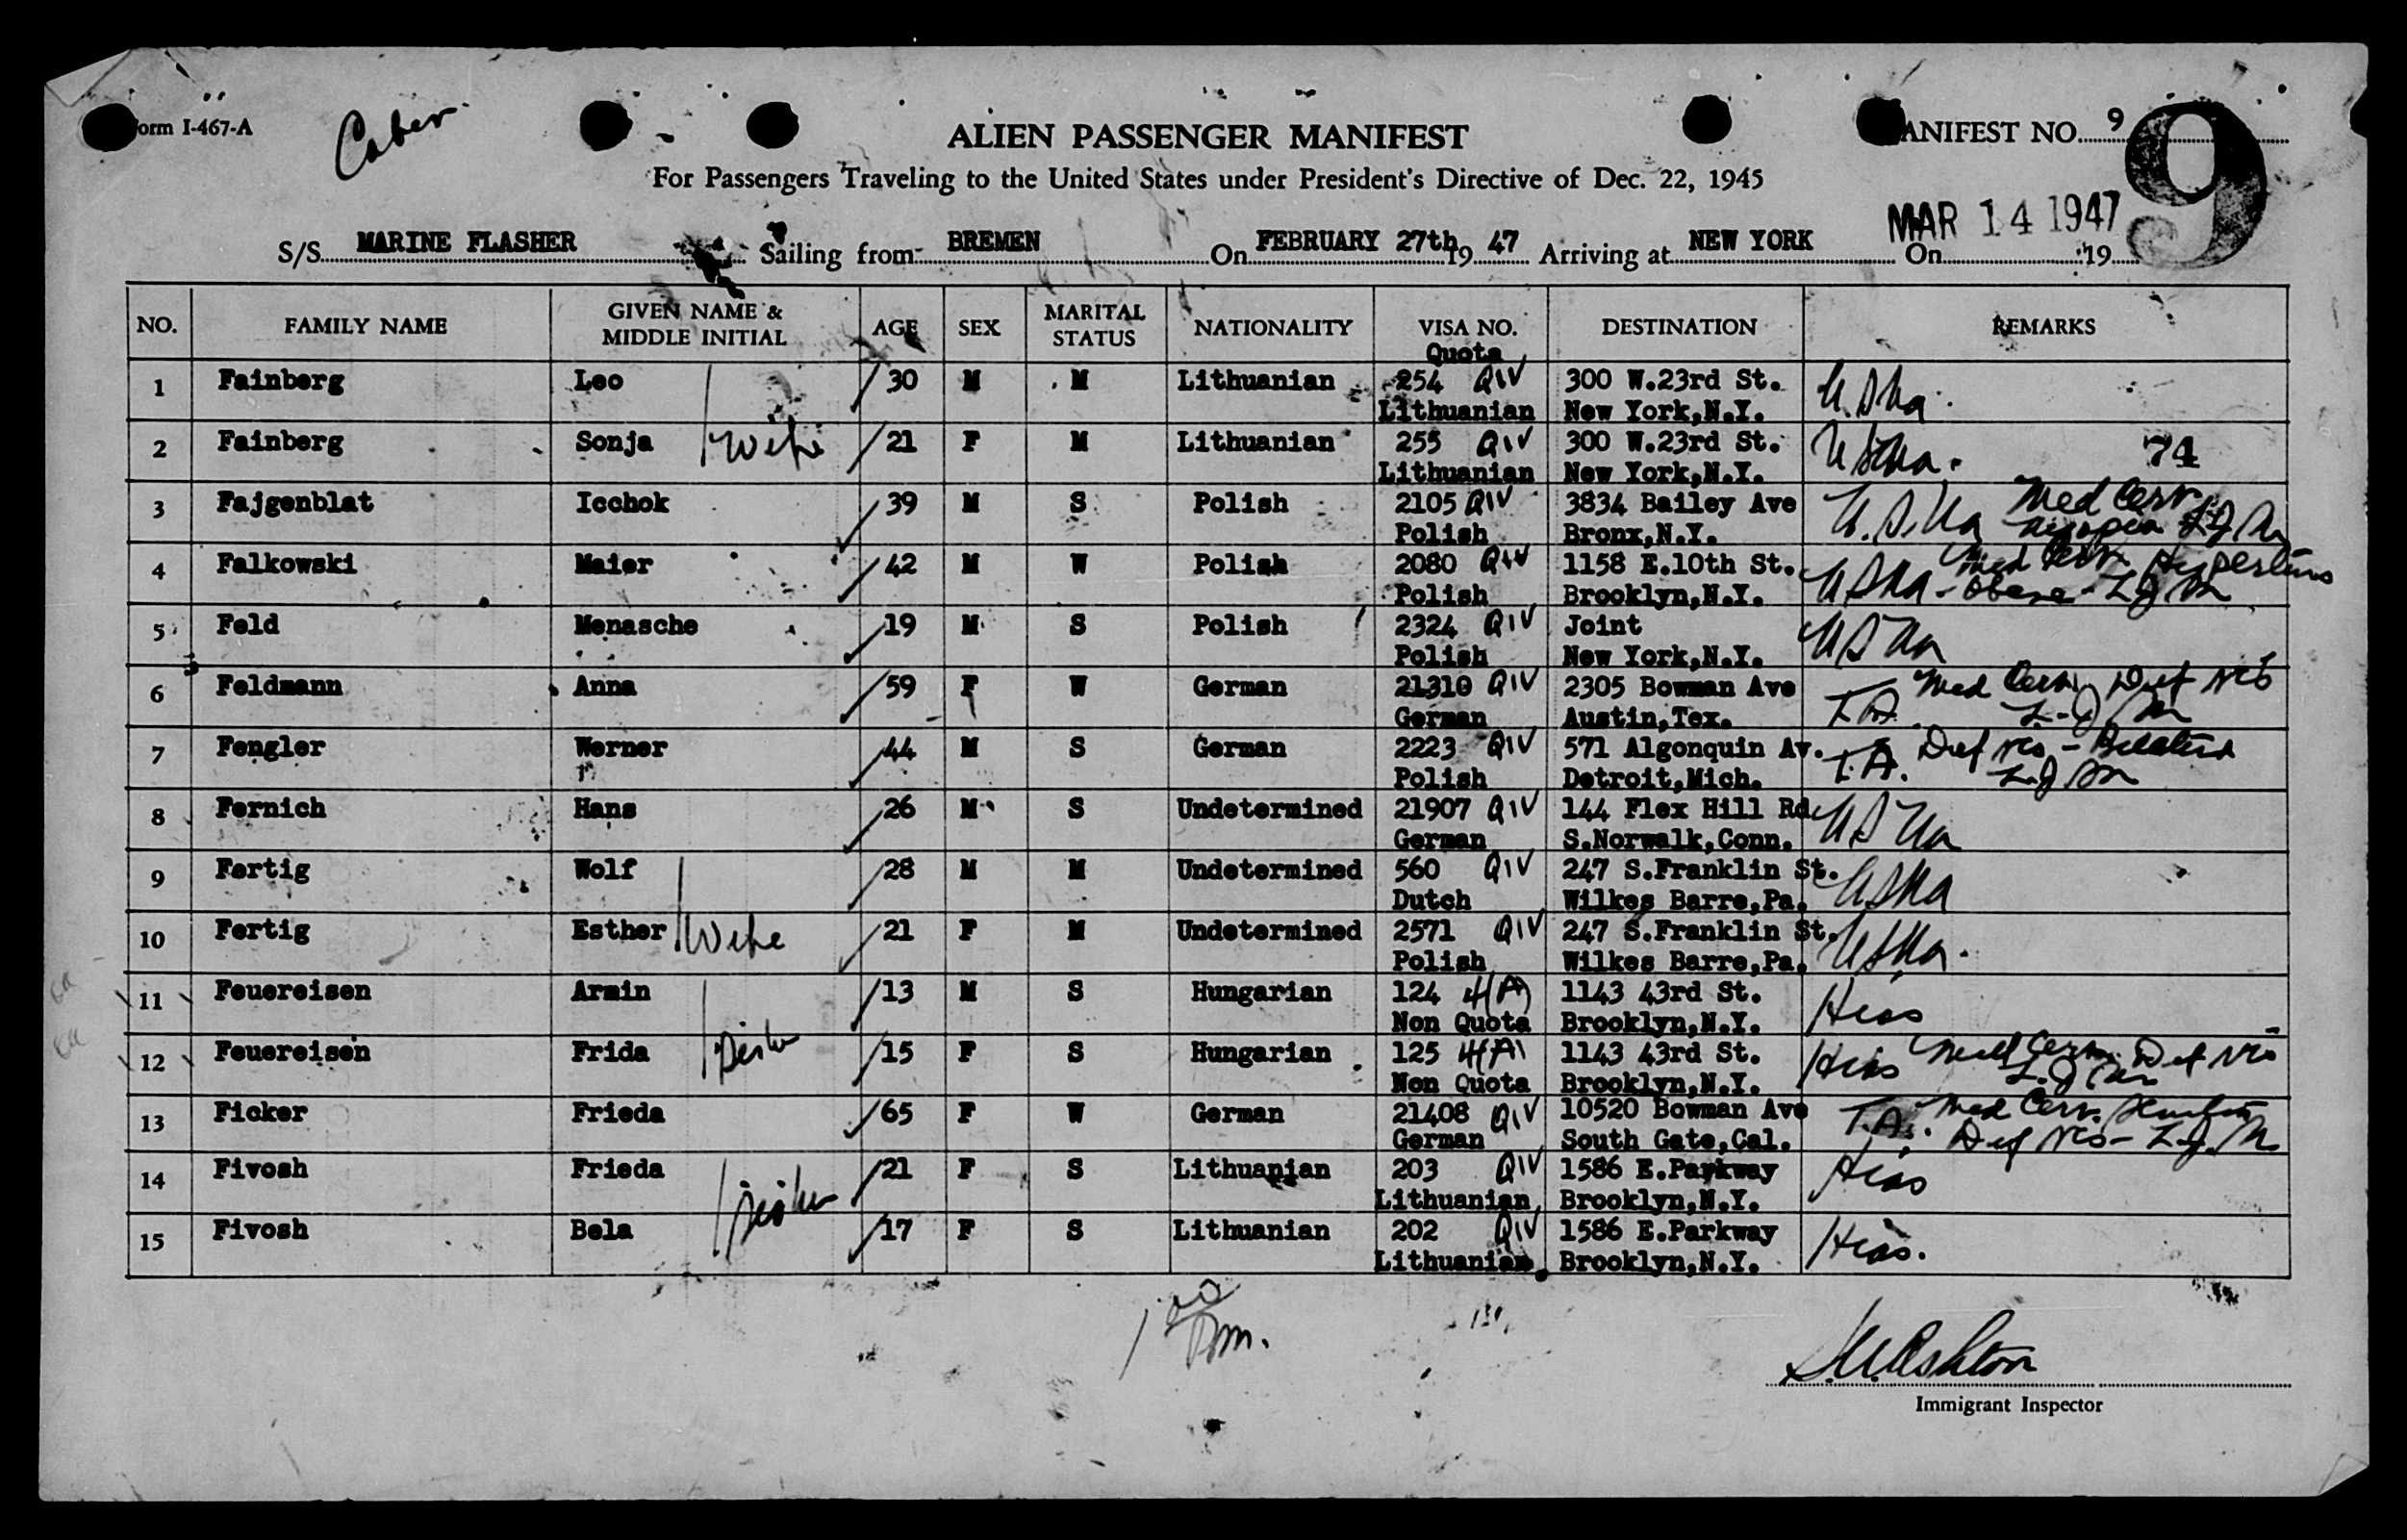 Form I-467-A
ALIEN PASSENGER MANIFEST
MANIFEST NO. 9
9
For Passengers Traveling to the United States under President's Directive of Dec. 22, 1945
MAR 14 1947
S/S MARINE FLASHER Sailing from BREMEN On FEBRUARY 27th 19 47 Arriving at NEW YORK On 19
NO. FAMILY NAME GIVEN NAME & MIDDLE INITIAL AGE SEX MARITAL STATUS NATIONALITY VISA NO. Quota DESTINATION REMARKS
1 Fainberg Leo 30 M M Lithuanian 254 QIV 300 W.23rd St. U.S.Na.
Lithuanian New York,N.Y.
2 Fainberg Sonja Wife 21 F M Lithuanian 255 QIV 300 W.23rd St. 74
Lithuanian New York,N.Y.
3 Fajgenblat Icchok 39 M S Polish 2105 QIV 3834 Bailey Ave Med Cert
Polish Bronx,N.Y.
4 Falkowski Maier 42 M W Polish 2080 QIV 1158 E.10th St. Med Cert
Polish Brooklyn,N.Y. Obese
5 Feld Menasche 19 M S Polish 2324 QIV Joint
Polish New York,N.Y.
6 Feldmann Anna 59 F W German 21310 QIV 2305 Bowman Ave Med Cert Def vis
German Austin,Tex. T.A.
7 Fengler Werner 44 M S German 2223 QIV 571 Algonquin Av. Def vis - Bilateral
Polish Detroit,Mich. T.A.
8 Fernich Hans 26 M S Undetermined 21907 QIV 144 Flex Hill Rd
German S.Norwalk,Conn.
9 Fertig Wolf 28 M M Undetermined 560 QIV 247 S.Franklin St.
Dutch Wilkes Barre,Pa.
10 Fertig Esther Wife 21 F M Undetermined 2571 QIV 247 S.Franklin St.
Polish Wilkes Barre,Pa.
11 Feuereisen Armin 13 M S Hungarian 124 4(A) 1143 43rd St. Hias
Non Quota Brooklyn,N.Y.
12 Feuereisen Frida Sister 15 F S Hungarian 125 4(A) 1143 43rd St. Hias Med Cert Def vis
Non Quota Brooklyn,N.Y.
13 Ficker Frieda 65 F W German 21408 QIV 10520 Bowman Ave T.A. Med Cert. Senility
German South Gate,Cal. Def vis
14 Fivosh Frieda 21 F S Lithuanian 203 QIV 1586 E.Parkway Hias
Lithuanian Brooklyn,N.Y.
15 Fivosh Bela Sister 17 F S Lithuanian 202 QIV 1586 E.Parkway Hias.
Lithuanian Brooklyn,N.Y.
Immigrant Inspector